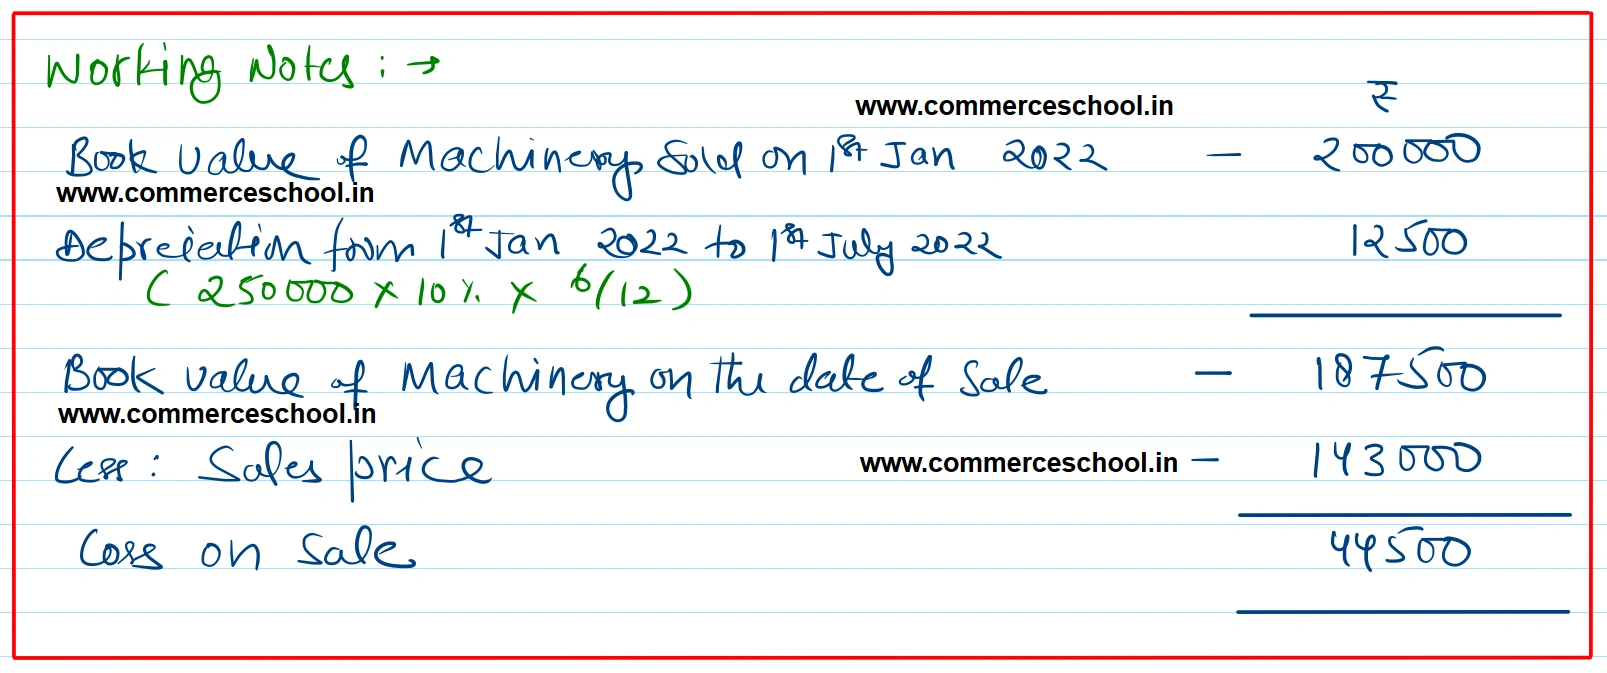 Working Notes : →
www.commerceschool.in ₹
Book Value of Machinery Sold on 1st Jan 2022 — 200000
www.commerceschool.in
Depreciation from 1st Jan 2022 to 1st July 2022 12500
( 250000 × 10 % × 6/12 )
Book value of Machinery on the date of Sale — 187500
www.commerceschool.in
Less : Sales price www.commerceschool.in — 143000
Loss on Sale 44500